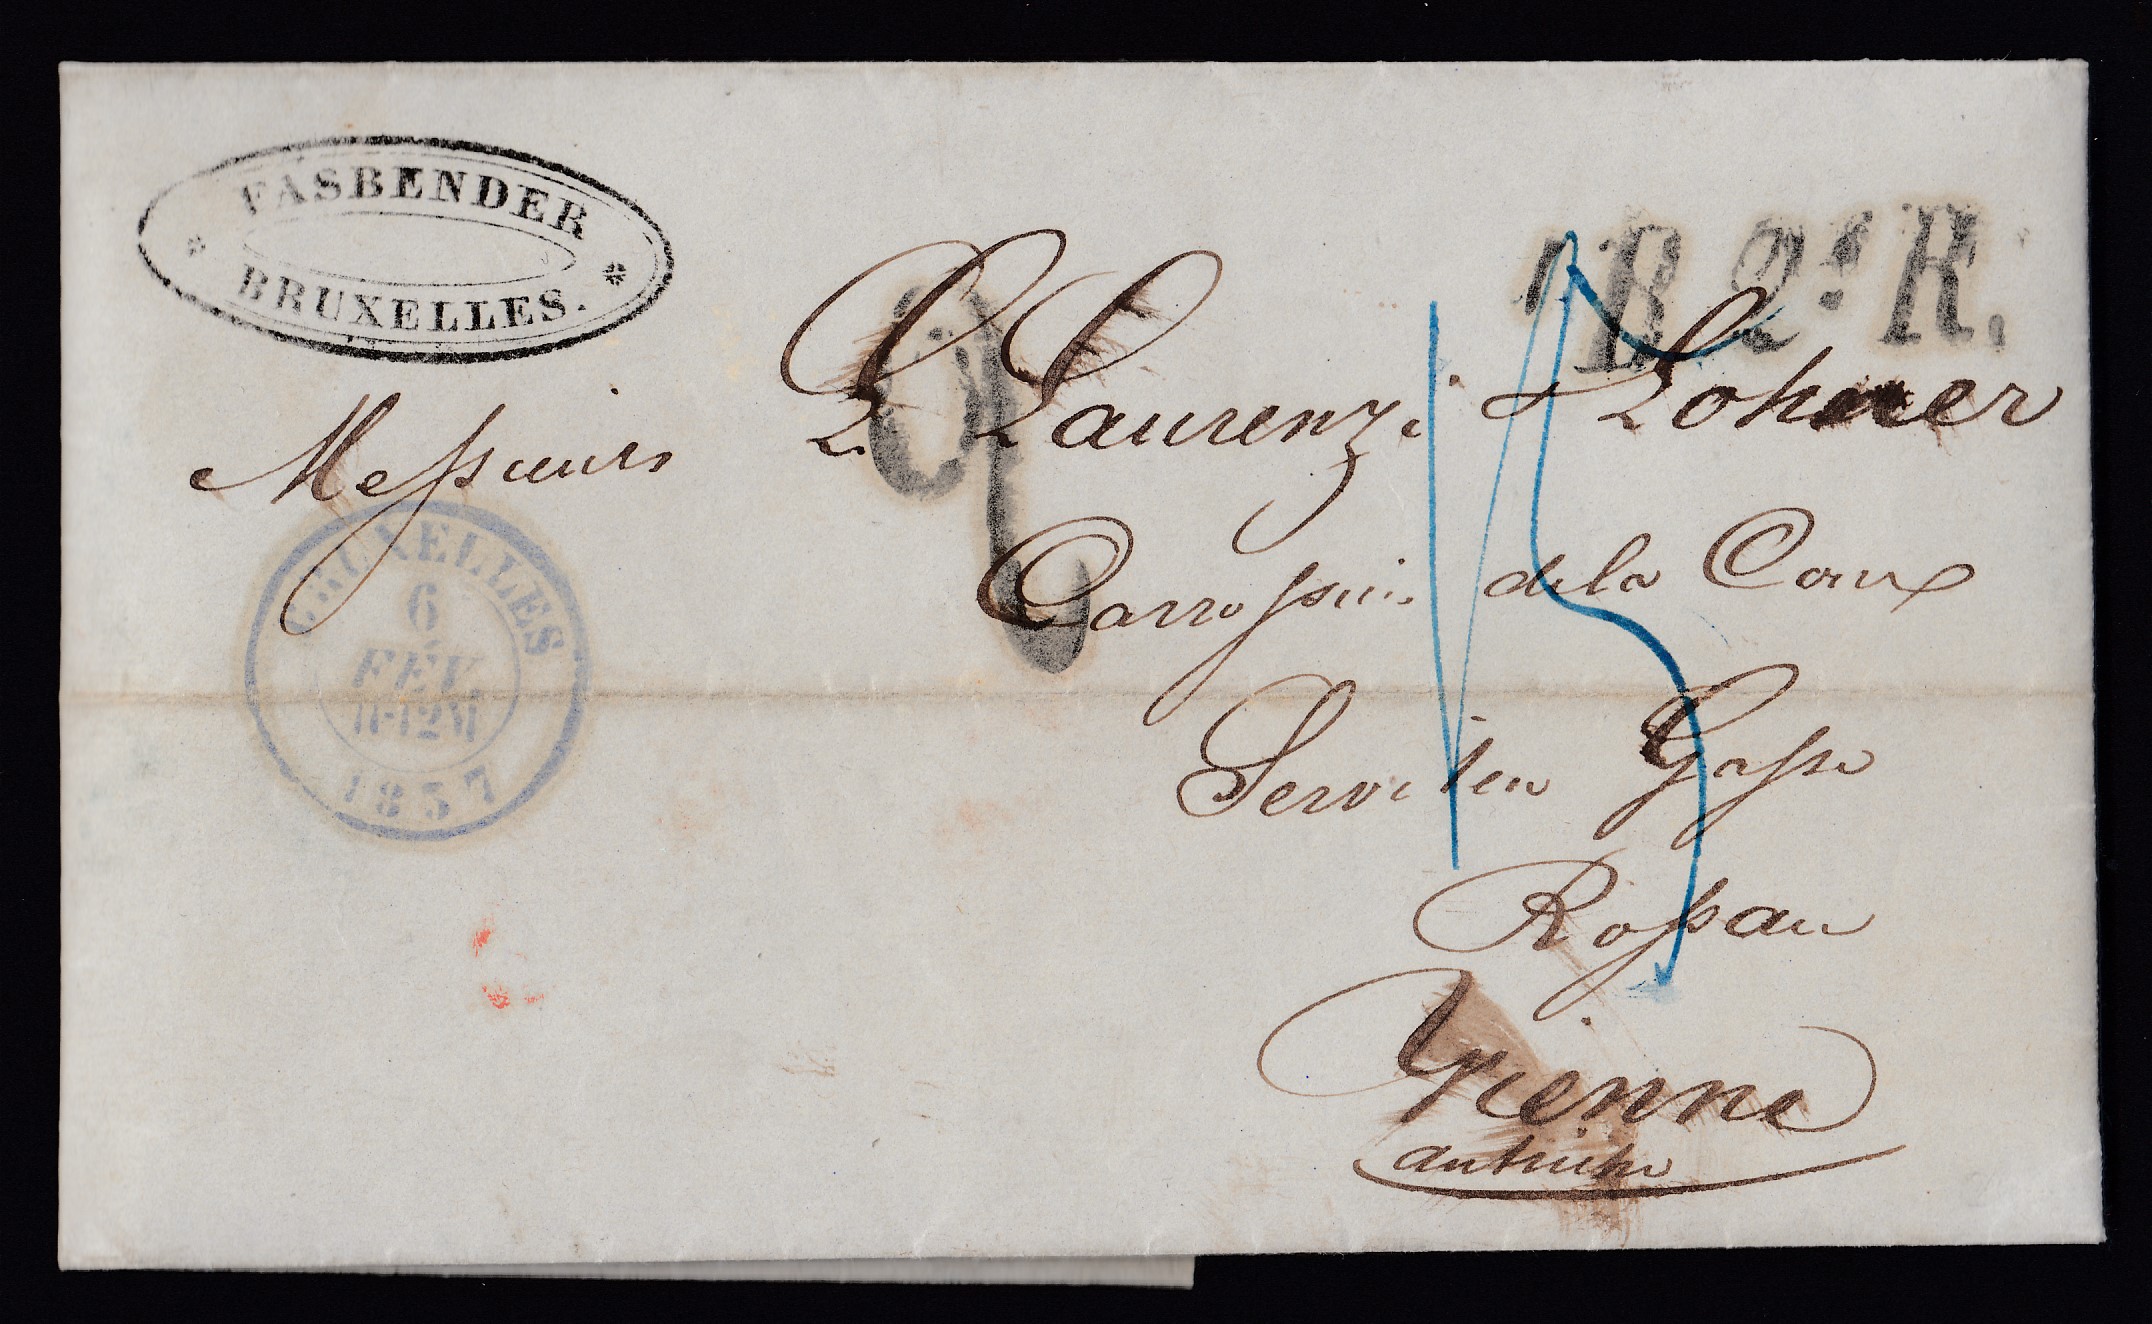 FASBENDER
BRUXELLES.
B. 2ᵉ R.
Messieurs L. Laurenzi & Lohner
Carrossiers de la Cour
BRUXELLES
6
FEV.
11-12M
1857
Serviten Gasse
Rossau
Vienne
autriche
15